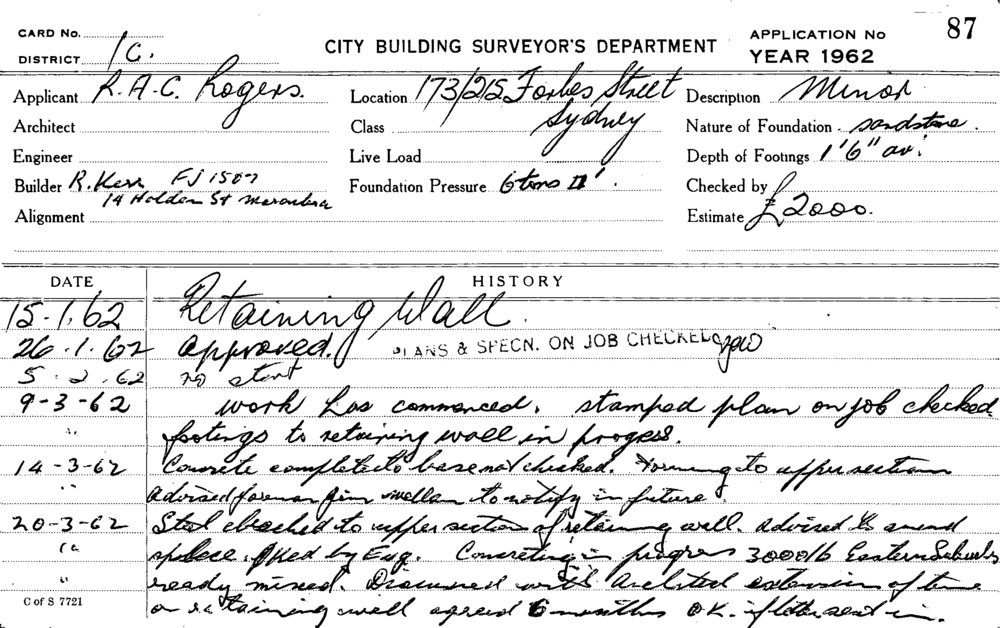 CARD No.
DISTRICT 1C.
CITY BUILDING SURVEYOR'S DEPARTMENT
APPLICATION No 87
YEAR 1962
Applicant R.A.C. Rogers.
Location 173/215 Forbes Street
Sydney
Description Minor
Architect
Class
Nature of Foundation sandstone.
Engineer
Live Load
Depth of Footings 1'6" av.
Builder R. Kerr FJ 1507
14 Holden St Maroubra
Foundation Pressure 6 tons □'.
Checked by
Alignment
Estimate £2000.
DATE HISTORY
15.1.62 Retaining Wall.
26.1.62 approved. PLANS & SPECN. ON JOB CHECKED
5.2.62 no start
9-3-62 work has commenced. stamped plan on job checked
" footings to retaining wall in progress.
14-3-62 Concrete completed to base not checked. Forming to upper section
" advised foreman Jim to notify in future.
20-3-62 Steel checked to upper section of retaining wall. advised to amend
" splice. OKed by Eng. Concreting in progress 3000 lb Eastern Suburbs
" ready mixed. Discussed with Architect extension of time
on retaining wall agreed 6 months OK. if letter sent in.
C of S 7721